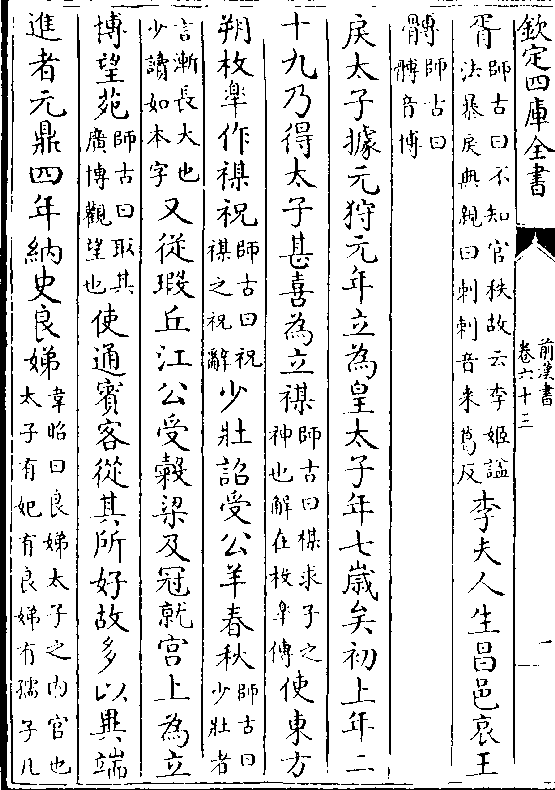 欽定四庫全書
前漢書
卷六十三
一
胥師古曰不知官秩故云李姬諡
法暴戾無親曰刺刺音來葛反李夫人生昌邑哀王
髆師古曰
髆音博
戾太子據元狩元年立為皇太子年七歲矣初上年二
十九乃得太子甚喜為立禖師古曰禖求子之
神也解在枚皋傳使東方
朔枚皋作禖祝師古曰祝
禖之祝辭少壯詔受公羊春秋師古曰
少壯者
言漸長大也
少讀如本字又從瑕丘江公受榖梁及冠就宮上為立
博望苑師古曰取其
廣博觀望也使通賓客從其所好故多以異端
進者元鼎四年納史良娣韋昭曰良娣太子之內官也
太子有妃有良娣有孺子凡